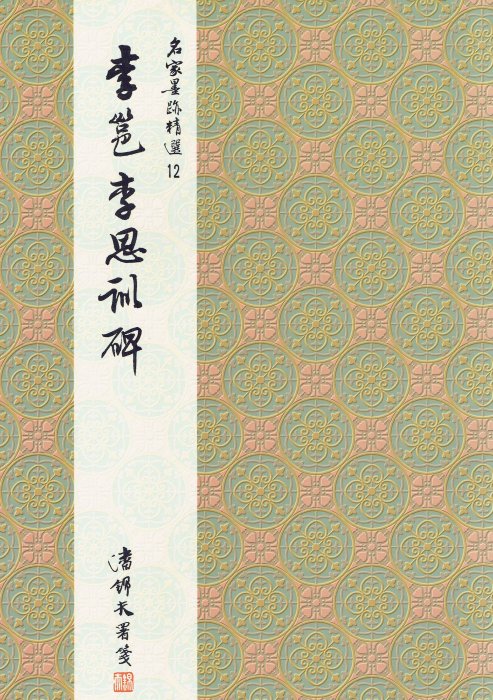 名家墨跡精選12
李邕李思訓碑
潘錦夫署箋